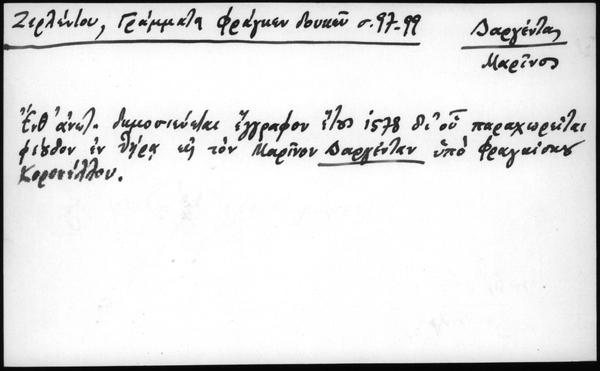 Ζερλέντου, Γράμματα Φράγκων δουκῶν σ. 97-99
Δαργέντας
Μαρῖνος
Ἔνθ' ἀνωτ. δημοσιεύεται ἔγγραφον ἔτους 1578 δι' οὗ παραχωρεῖται
φέουδον ἐν Θήρᾳ εἰς τὸν Μαρῖνον Δαργένταν ὑπὸ Φραγκίσκου
Κορονέλλου.